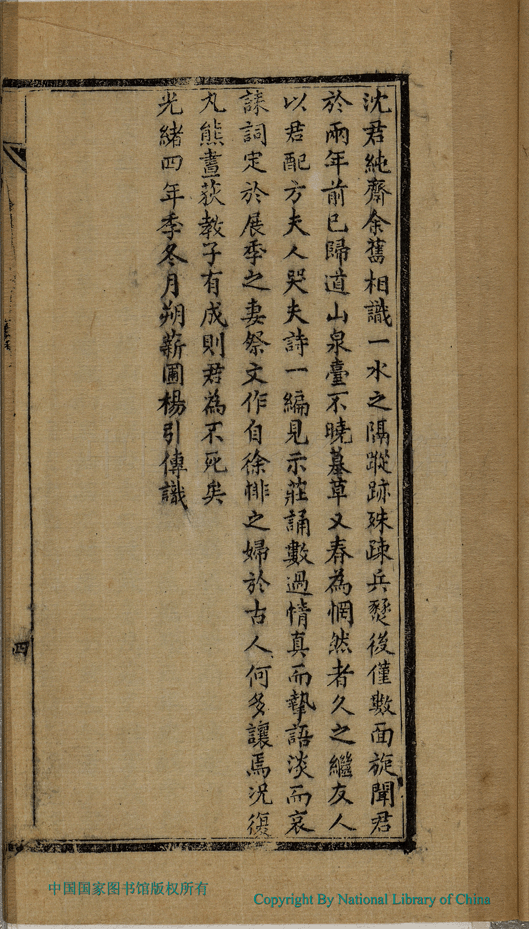 沈君純齋余舊相識一水之隔蹤跡殊踈兵燹後僅數面旋聞君
於兩年前已歸道山泉臺不曉墓草又春為惘然者久之繼友人
以君配方夫人哭夫詩一編見示莊誦數過情真而摯語淡而哀
誄詞定於展季之妻祭文作自徐悱之婦於古人何多讓焉況復
丸熊畫荻教子有成則君為不死矣
光緒四年季冬月朔薪圃楊引傳識
四
中国国家图书馆版权所有
Copyright By National Library of China